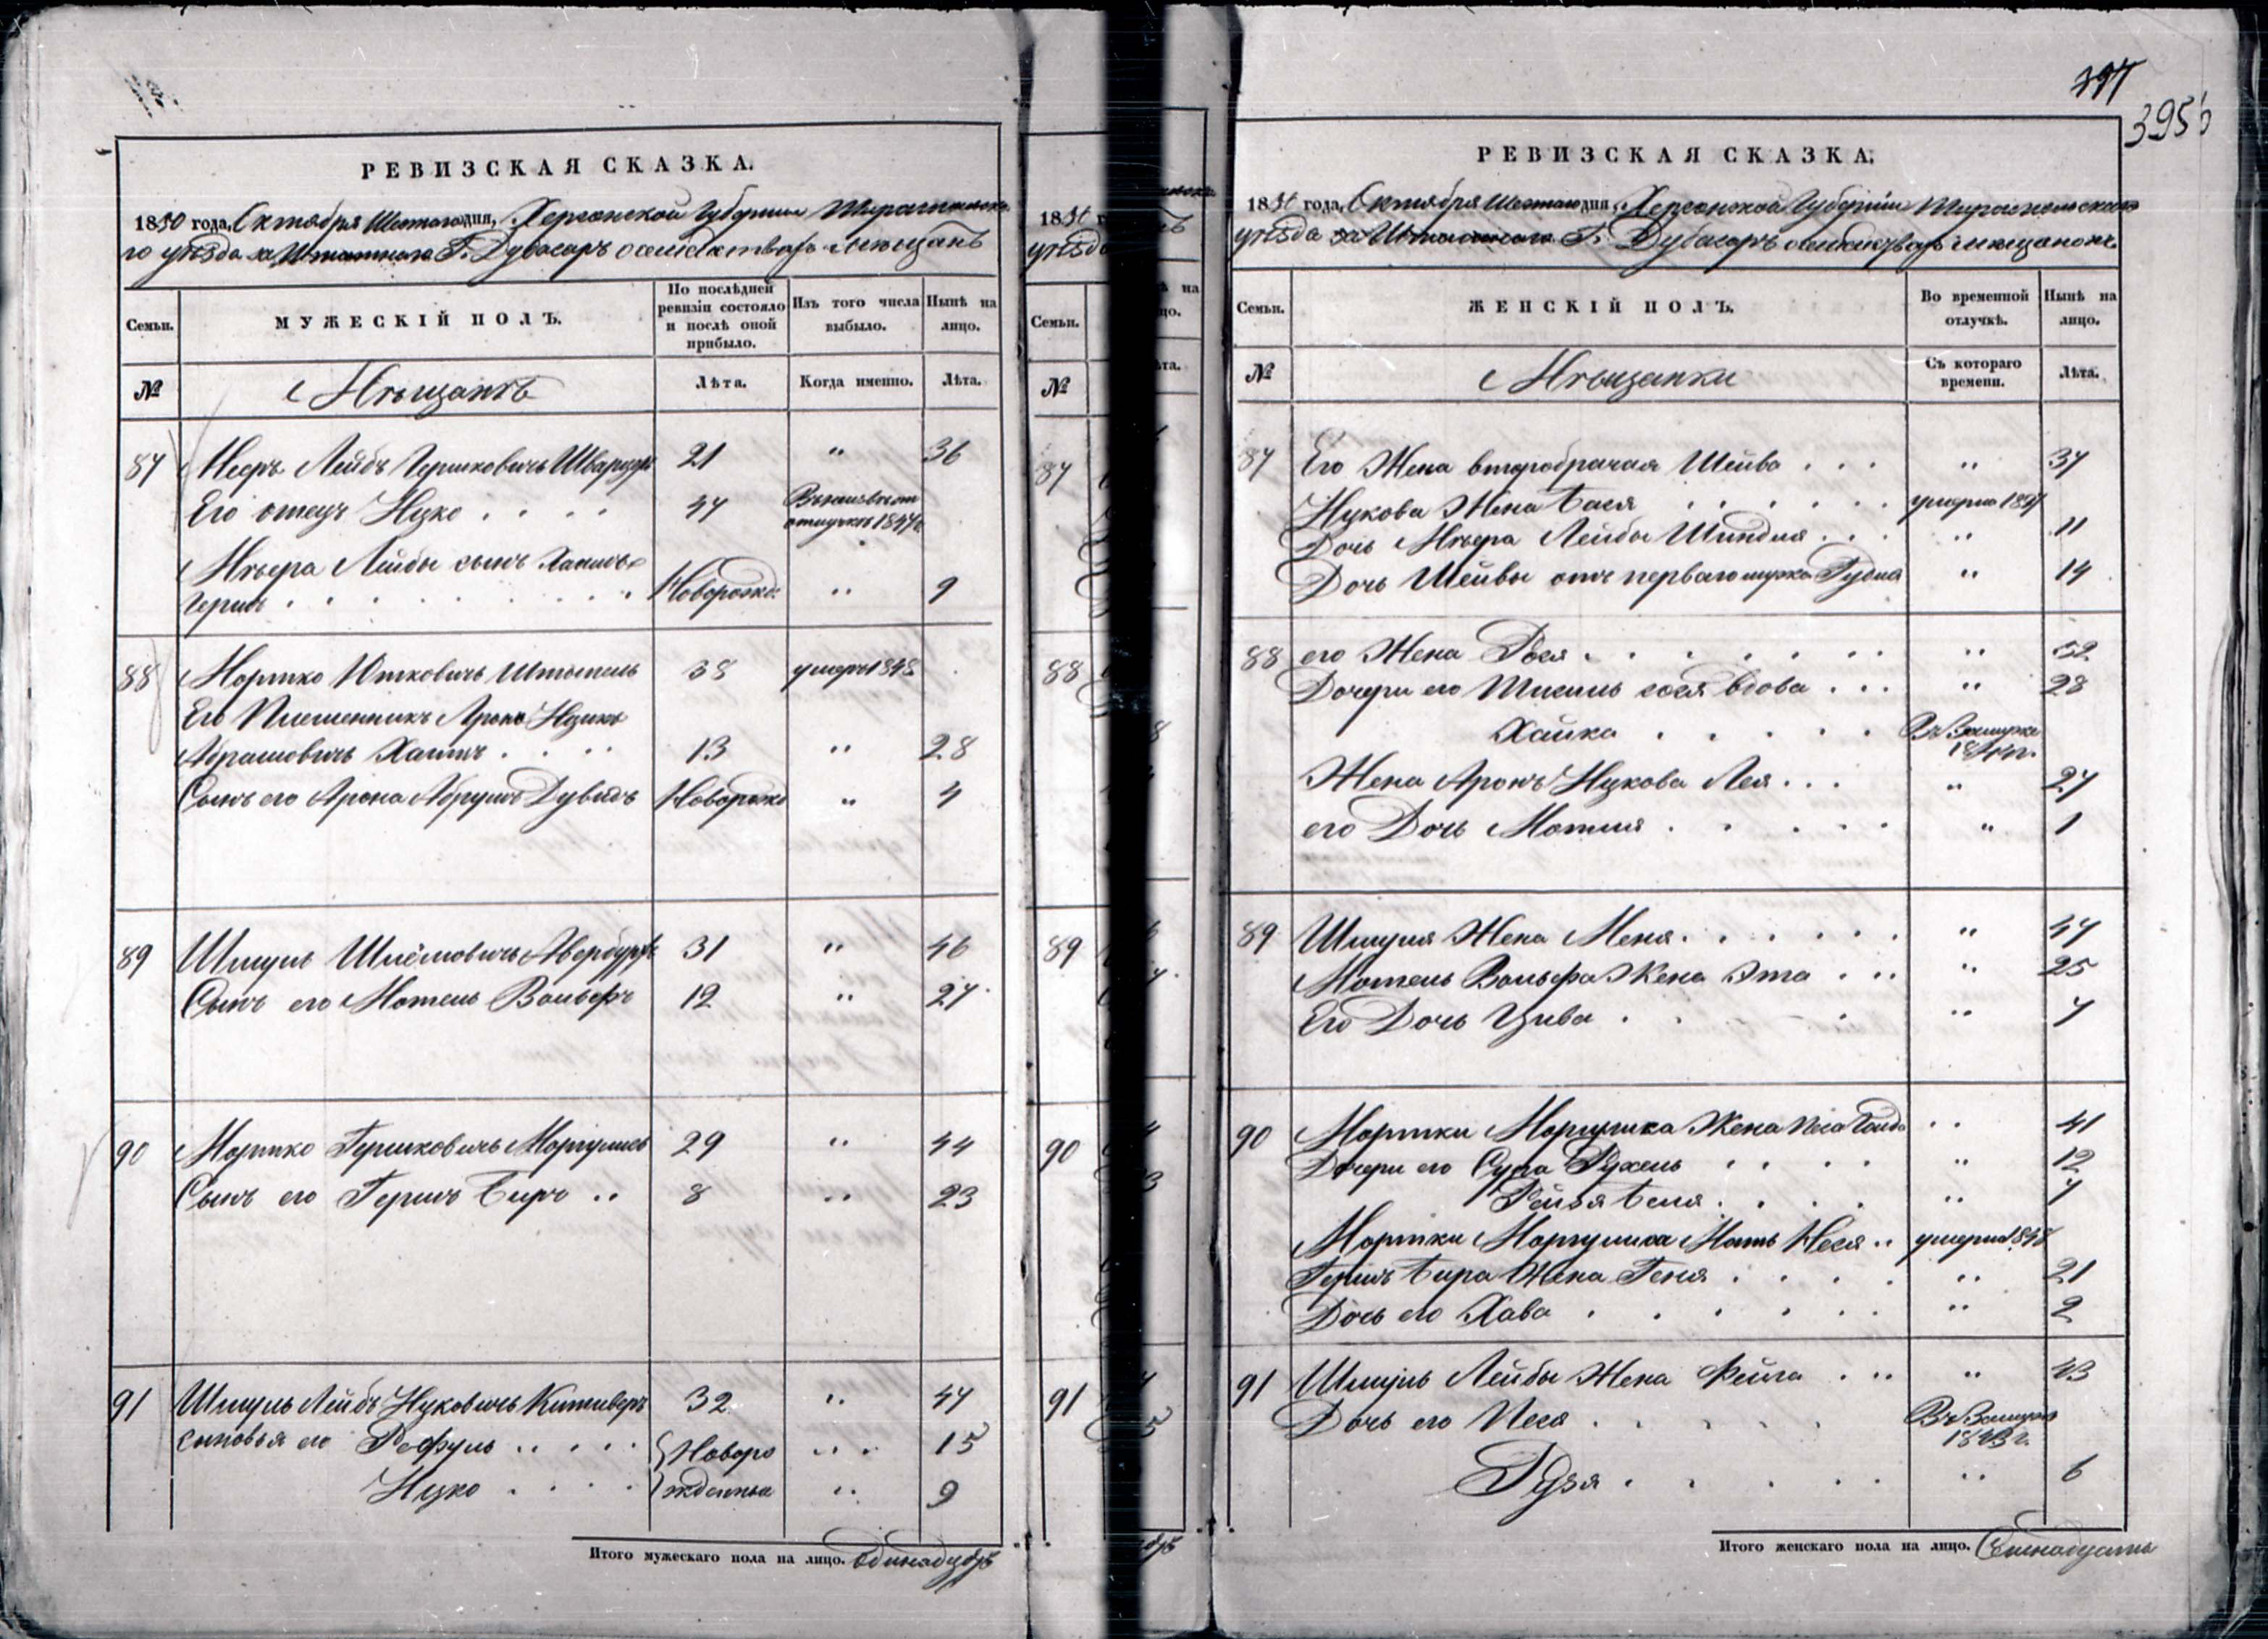 РЕВИЗСКАЯ СКАЗКА.
1850 года, Октября Шестаго дня, Херсонской Губернии Тираспольска-
го уѣзда Г. Дубасаръ о мещанъ
Семьи.
МУЖЕСКІЙ ПОЛЪ.
По послѣдней ревизіи состояло и послѣ оной прибыло.
Изъ того числа выбыло.
Нынѣ на лицо.
№
Мѣщанъ
Лѣта.
Когда именно.
Лѣта.
87 Мееръ Лейбъ Гершковичъ Шварцъ 21 " 36
Его отецъ Ицко 47 отлучкѣ 1847
Меера Лейбы сынъ
Герш Новорожд: " 9
88 Мортко Юдковичъ 38 умеръ 1848
Его Племенникъ Аронъ Ицикъ
Абрамовичъ Хаитъ 13 " 28
Сынъ его Арона Абрумъ Дувидъ Новорожд " 4
89 Шмуль Шлёмовичъ Авербурхъ 31 " 46
Сынъ его Мотель Вольфъ 12 " 27
90 Мортко Гершковичъ Моргулисъ 29 " 44
Сынъ его Гершъ Беръ 8 " 23
91 Шмуль Лейбъ Ицковичъ 32 " 47
сыновья его Рефуль Новоро " 15
Ицко жденные " 9
Итого мужескаго пола на лицо. Одинадцать
185
уѣзда
Семьи.
№
87
88
89
90
91
797
395
РЕВИЗСКАЯ СКАЗКА.
1850 года, Октября Шестаго дня, Херсонской Губерніи Тираспольскаго
уѣзда Г. Дубасаръ о мещанокъ
Семьи.
ЖЕНСКІЙ ПОЛЪ.
Во временной отлучкѣ.
Нынѣ на лицо.
№
Мѣщанки
Съ котораго времени.
Лѣта.
87 Его Жена второбрачая Шейва " 37
Ицкова Жена Бася умерла 1847
Дочь Меера Лейбы Шиндля " 11
Дочь Шейвы отъ перваго мужа " 14
88 его Жена Рося " 52
Дочери его вдова " 28
Хайка Въ Замуже
Жена Аронъ Ицкова Лея " 27
его Дочь Мотля " 1
89 Шмуля Жена Меня " 47
Мотель Вольфа Жена Эта " 25
Его Дочь Цива " 7
90 Мортки Моргулиса Жена " 41
Дочери его Сура Рухель " 12
Рейзя Бейля " 7
Мортки Моргулиса Мать Неся умерла 1848
Гершъ Бера Жена Геня " 21
Дочь его Хава " 2
91 Шмуль Лейбы Жена Фейга " 43
Дочь его Песя Въ Замуже
1843 г.
Рузя " 6
Итого женскаго пола на лицо.